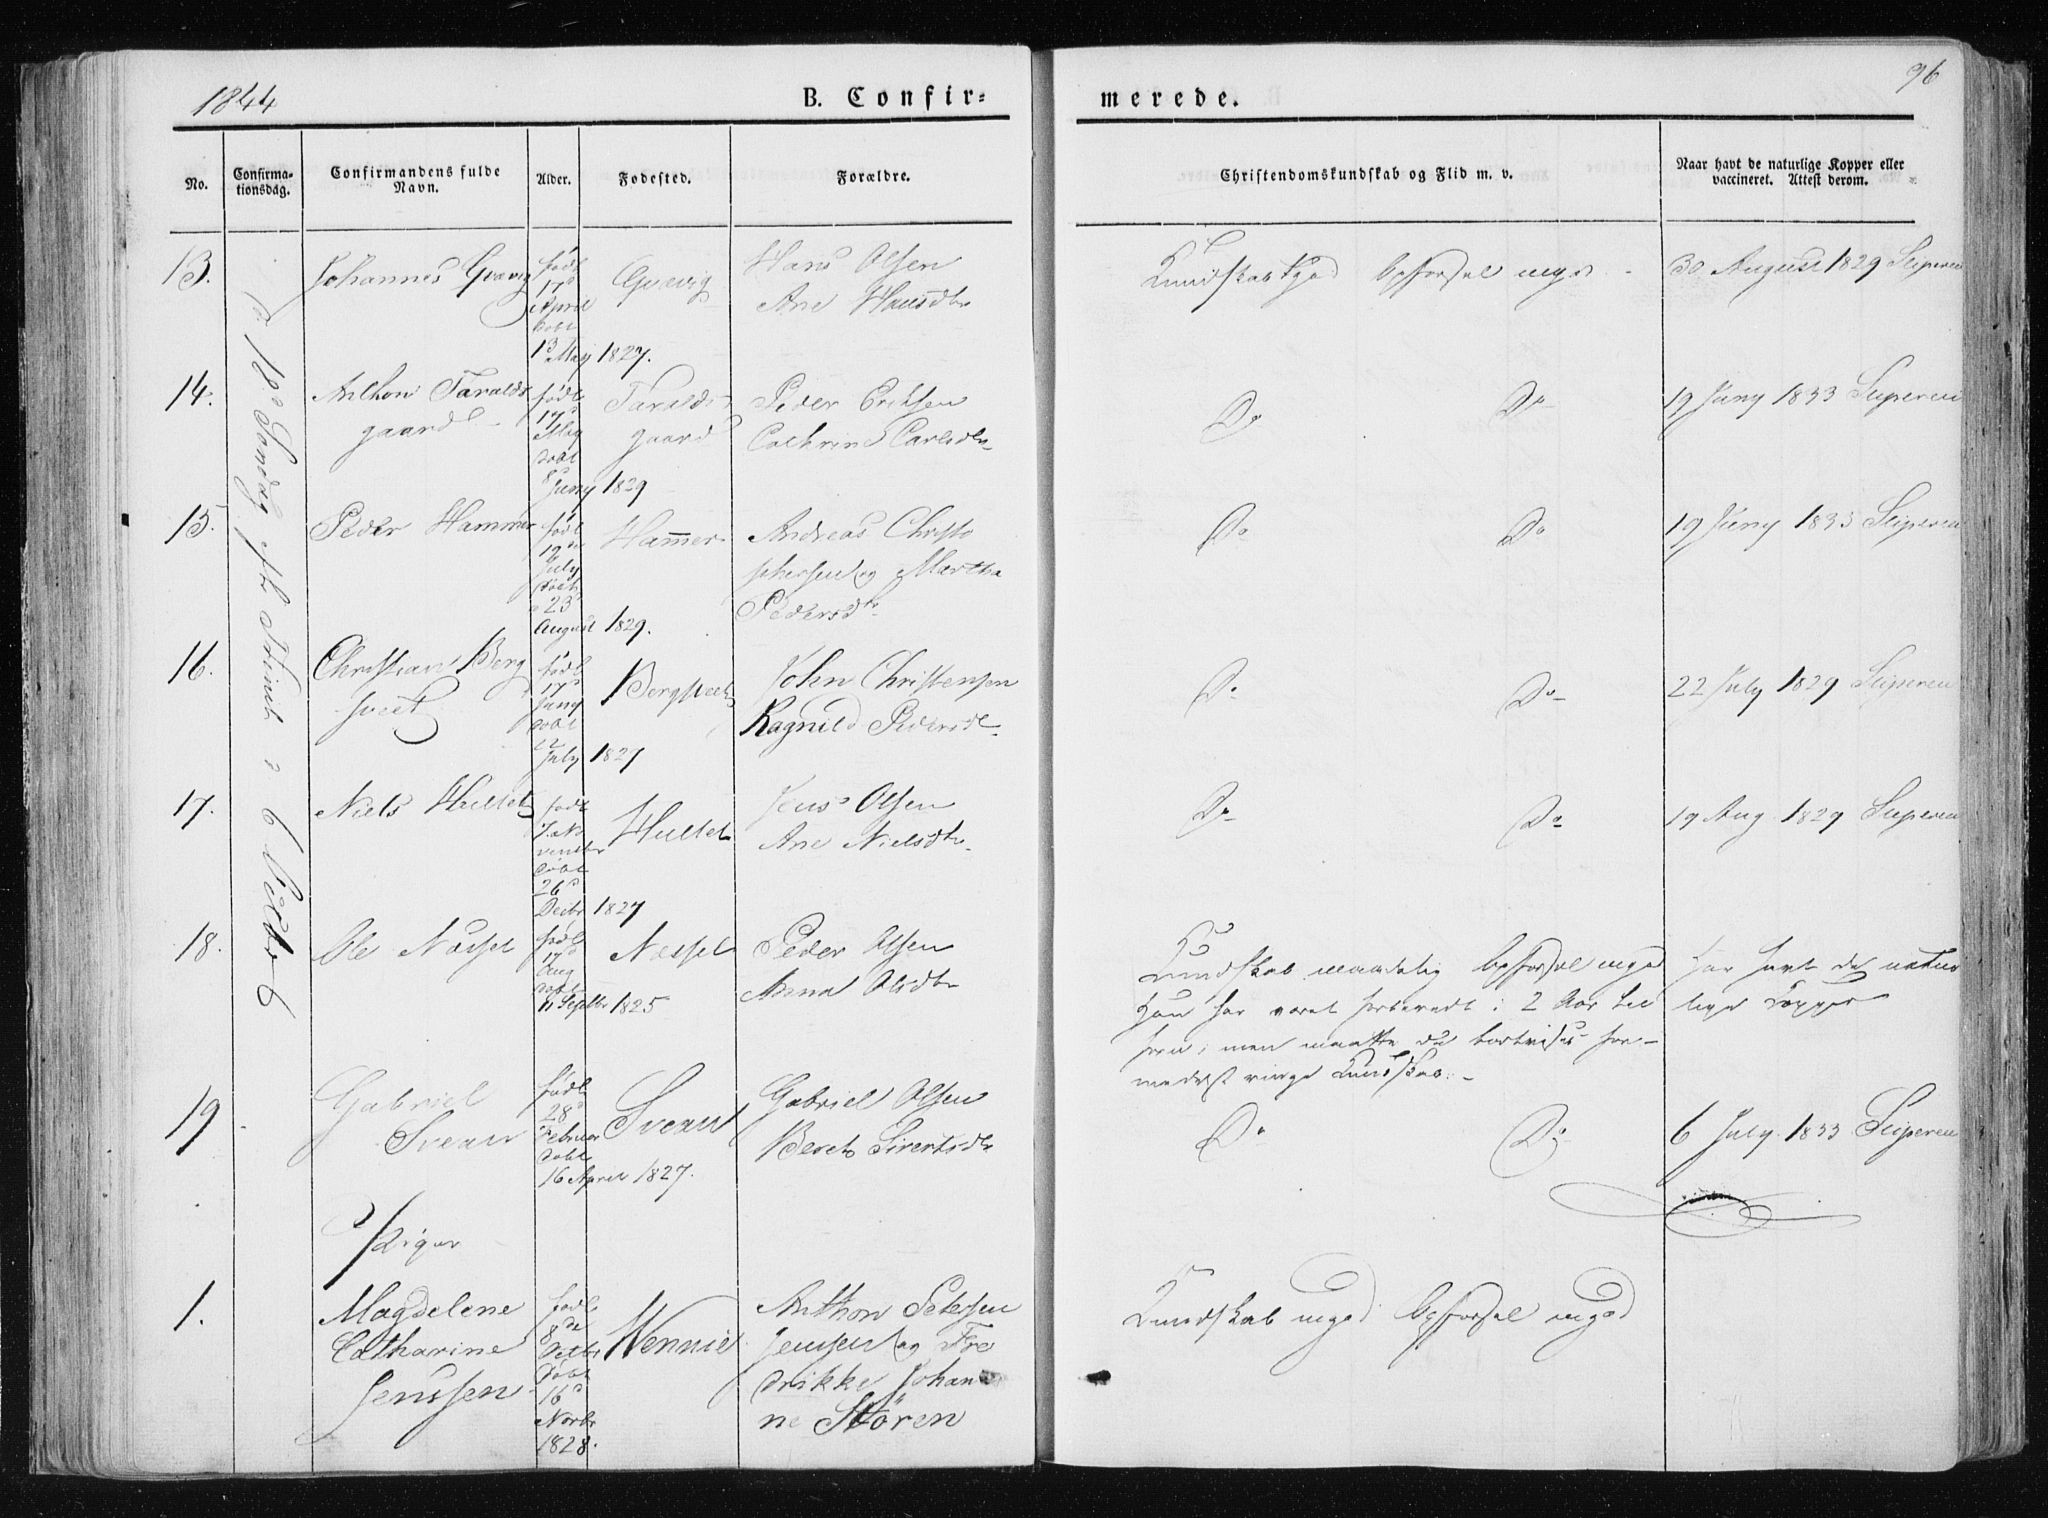 1844
B. Confir=
merede.
96
No.
Confirma-
tionsdag.
Confirmandens fulde
Navn.
Alder.
Fødested.
Forældre.
Christendomskundskab og Flid m. v.
Naar havt de naturlige Kopper eller
vaccineret. Attest derom.
Søndag
6
13.
Johannes Grøvig
født
17d
April
døbt
13 May 1827.
Grøvig
Hans Olsen
Ane Hansdtr
Kundskab god Opførsel mgod
30 August 1829
14.
Anthon Faralds
gaard
født
17d
May
døbt
8d
Juny 1829
Faralds
gaard
Peder Eriksen
Cathrine Carlsdtr
Do
Do
19 Juny 1833
15.
Peder Hammer
født
July
døbt
23d
August 1829.
Hammer
Andreas Christo
phersen og Martha
Pedersdtr
Do
Do
19 Juny 1833
16.
Christian Berg
født
17d
Juny
døbt
22
July 1827
John Christensen
Ragnild Pedersdtr
Do
Do
22 July 1829
17.
Niels Hultet
født
7de No
vember
døbt
26d
Decbr 1827
Hultet
Jens Olsen
Ane Nielsdtr
Do
Do
19 Aug 1829
18.
Ole Næsset
født
17d
Aug
døbt
11 Septbr 1825
Næsset
Peder Olsen
Anna Olsdtr
Kundskab maadelig Opførsel mgod
Han har været forberedt i 2 Aar til
forn, men maatte da bortvises for-
medelst ringe Kundskab.
Har havt de natur
lige Kopper
19.
Gabriel
født
28d
Februar
døbt
16 April 1827.
Gabriel Olsen
Beret Sivertsdtr
Do
Do
6 July 1833
Piger
1.
Magdelene
Catharine
Jenssen
født
8de
Octbr
døbt
16d
Novbr
1828.
Wennie
Anthon Petersen
Jenssen og Fre
drikke Johan
ne Stören
Kundskab mgod Opførsel mgod